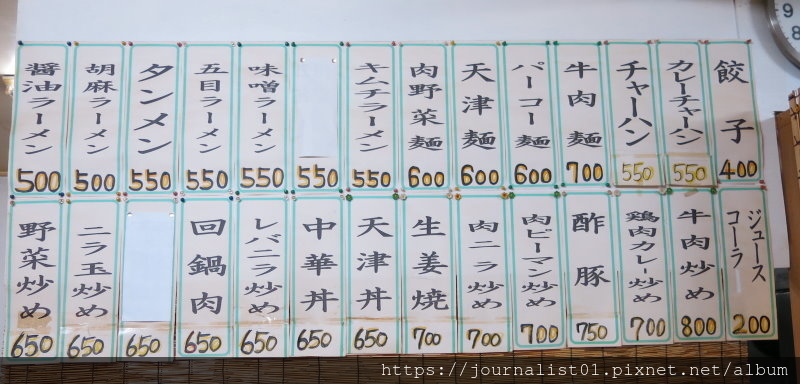 醤油ラーメン 500
胡麻ラーメン 500
タンメン 550
五目ラーメン 550
味噌ラーメン 550
550
キムチラーメン 550
肉野菜麺 600
天津麺 600
パーコー麺 600
牛肉麺 700
チャーハン 550
カレーチャーハン 550
餃子 400
野菜炒め 650
ニラ玉炒め 650
650
回鍋肉 650
レバニラ炒め 650
中華丼 650
天津丼 650
生姜焼 700
肉ニラ炒め 700
肉ピーマン炒め 700
酢豚 750
鶏肉カレー炒め 700
牛肉炒め 800
ジュース
コーラ 200
9
8
https://journalist01.pixnet.net/album